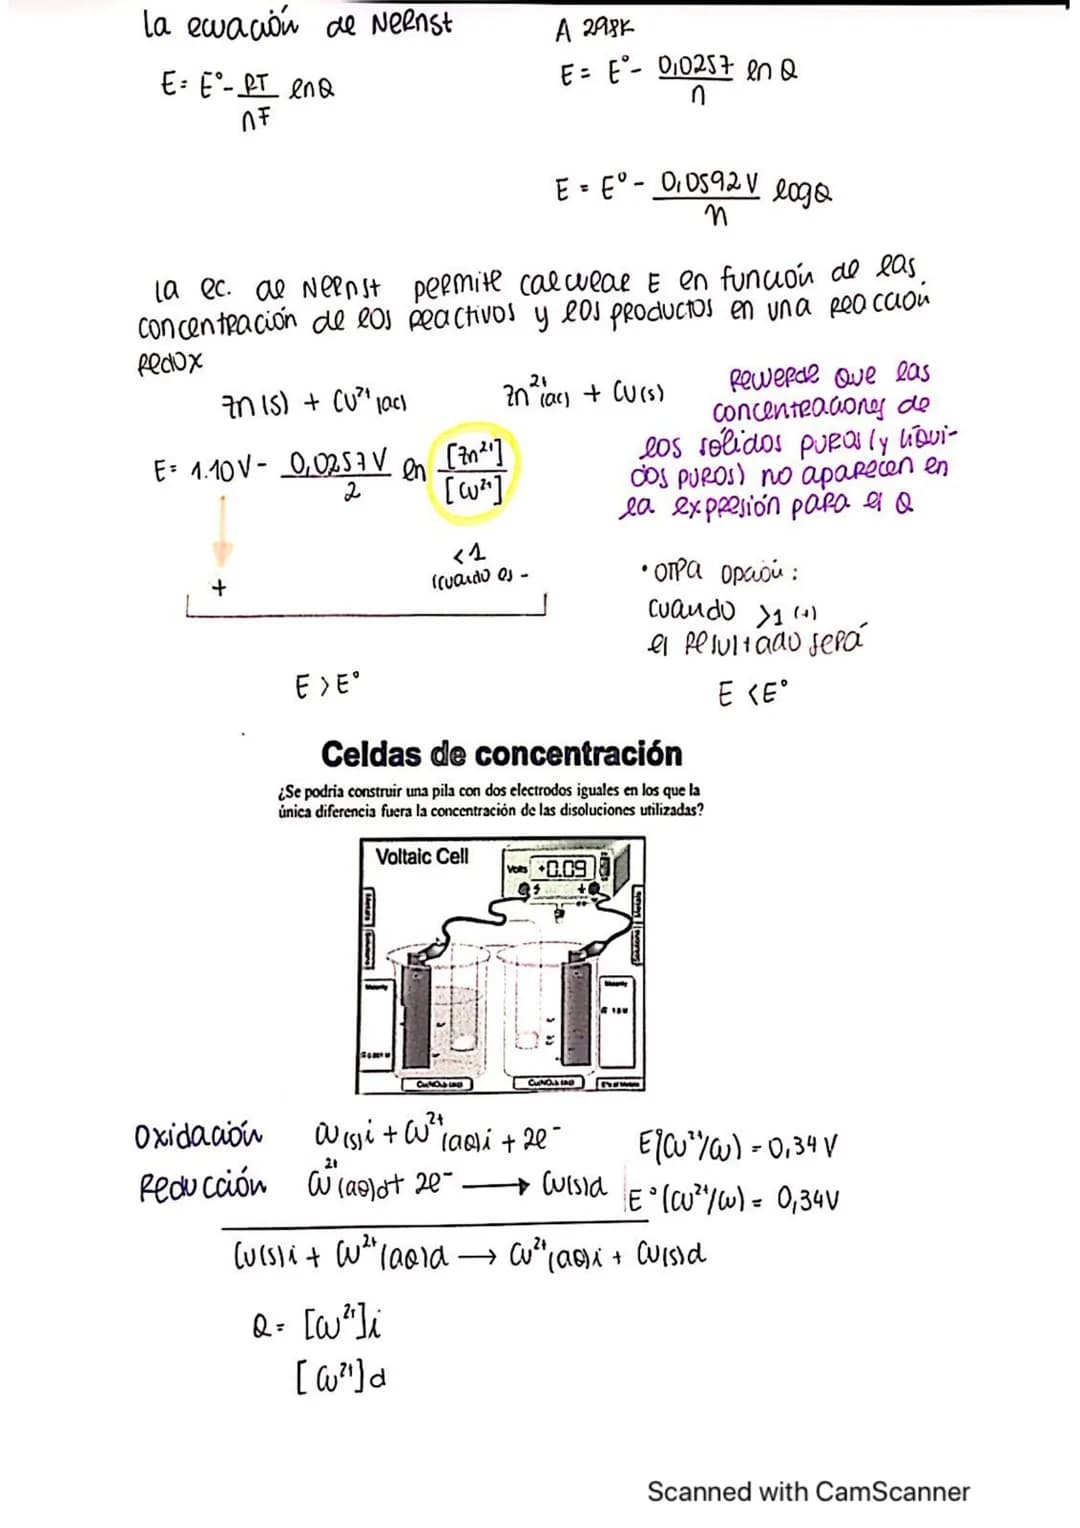 la ecuación de Neenst
A 298K
E = E° - RT/nF ln Q
E = E° - 0,0257/n ln Q
E = E° - 0,0592 V/n log Q
la ec. de Neenst permite calcular E en función de las
concentración de los reactivos y los productos en una reacción
redox
Zn (s) + Cu²⁺ (ac) Zn²⁺ (ac) + Cu (s)
E = 1.10 V - 0,0257 V/2 ln [Zn²⁺]/[Cu²⁺]
Recuerde que las
concentraciones de
los sólidos puros (y líqui-
dos puros) no aparecen en
la expresión para el Q
+
<1
(cuando es -
• otra opción:
cuando >1 (+)
el resultado será
E > E°
E < E°
Celdas de concentración
¿Se podría construir una pila con dos electrodos iguales en los que la
única diferencia fuera la concentración de las disoluciones utilizadas?
Voltaic Cell
Volts +0.09
Oxidación Cu(s)i + Cu²⁺(aq)i + 2e⁻ E°(Cu²⁺/Cu) = 0,34 V
Reducción Cu²⁺(aq)d + 2e⁻ → Cu(s)d E°(Cu²⁺/Cu) = 0,34V
Cu(s)i + Cu²⁺(aq)d → Cu²⁺(aq)i + Cu(s)d
Q = [Cu²⁺]i
[Cu²⁺]d
Scanned with CamScanner